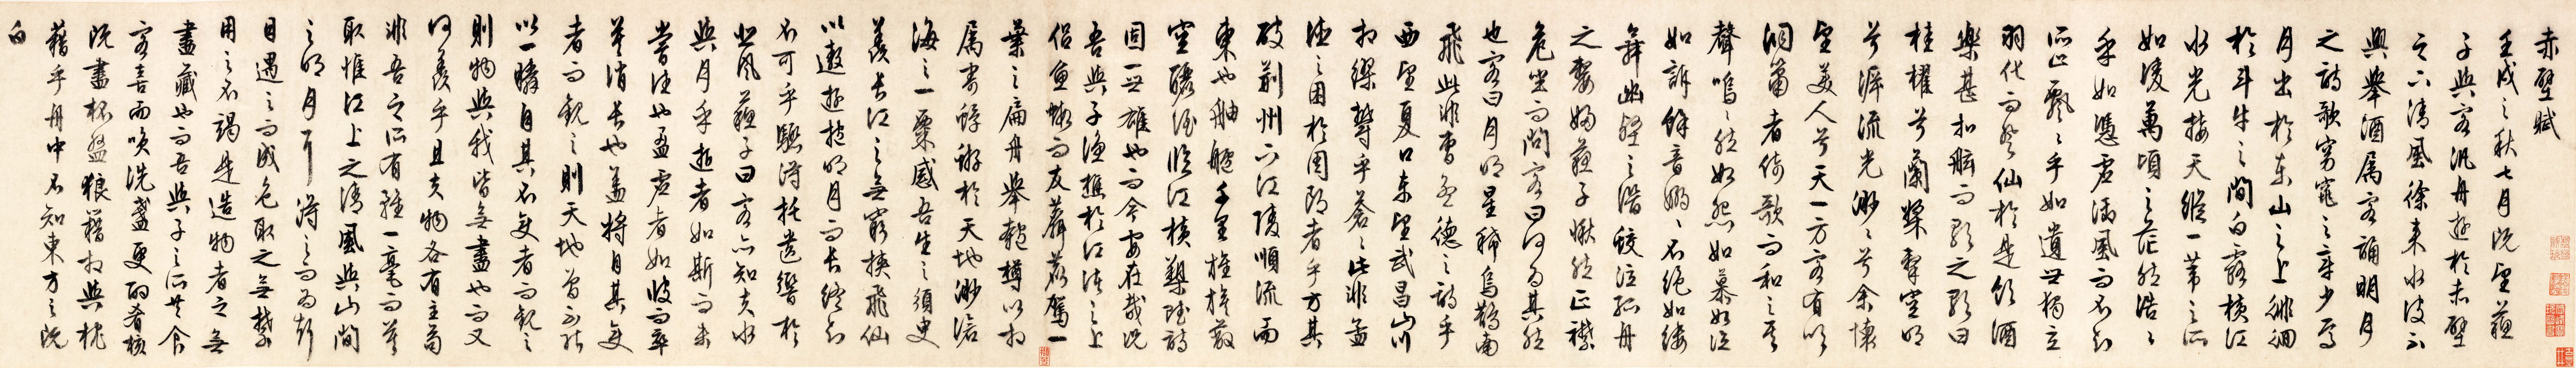 赤壁賦
壬戌之秋七月既望蘇
子與客汎舟遊於赤壁
之下清風徐來水波不
興舉酒屬客誦明月
之詩歌窈窕之章少焉
月出於東山之上徘徊
於斗牛之間白露橫江
水光接天縱一葦之所
如淩萬頃之茫然浩浩
乎如憑虛御風而不知
所止飄飄乎如遺世獨立
羽化而登仙於是飲酒
樂甚扣舷而歌之歌曰
桂櫂兮蘭槳擊空明
兮泝流光渺渺兮余懷
望美人兮天一方客有吹
洞簫者倚歌而和之其
聲嗚嗚然如怨如慕如泣
如訴餘音嫋嫋不絕如縷
舞幽壑之潛蛟泣孤舟
之嫠婦蘇子愀然正襟
危坐而問客曰何為其然
也客曰月明星稀烏鵲南
飛此非曹孟德之詩乎
西望夏口東望武昌山川
相繆鬱乎蒼蒼此非孟
德之困於周郎者乎方其
破荊州下江陵順流而
東也舳艫千里旌旗蔽
空釃酒臨江橫槊賦詩
固一世雄也而今安在哉況
吾與子漁樵於江渚之上
侶魚蝦而友麋鹿駕一
葉之扁舟舉匏樽以相
屬寄蜉蝣於天地渺滄
海之一粟感吾生之須臾
羨長江之無窮挾飛仙
以遨遊抱明月而長終知
不可乎驟得托遺響於
悲風蘇子曰客亦知夫水
與月乎逝者如斯而未
嘗往也盈虛者如彼而卒
莫消長也蓋將自其變
者而觀之則天地曾不能
以一瞬自其不變者而觀之
則物與我皆無盡也而又
何羨乎且夫物各有主苟
非吾之所有雖一毫而莫
取惟江上之清風與山間
之明月耳得之而為聲
目遇之而成色取之無禁
用之不竭是造物者之無
盡藏也而吾與子之所共食
客喜而笑洗盞更酌肴核
既盡杯盤狼藉相與枕
藉乎舟中不知東方之既
白